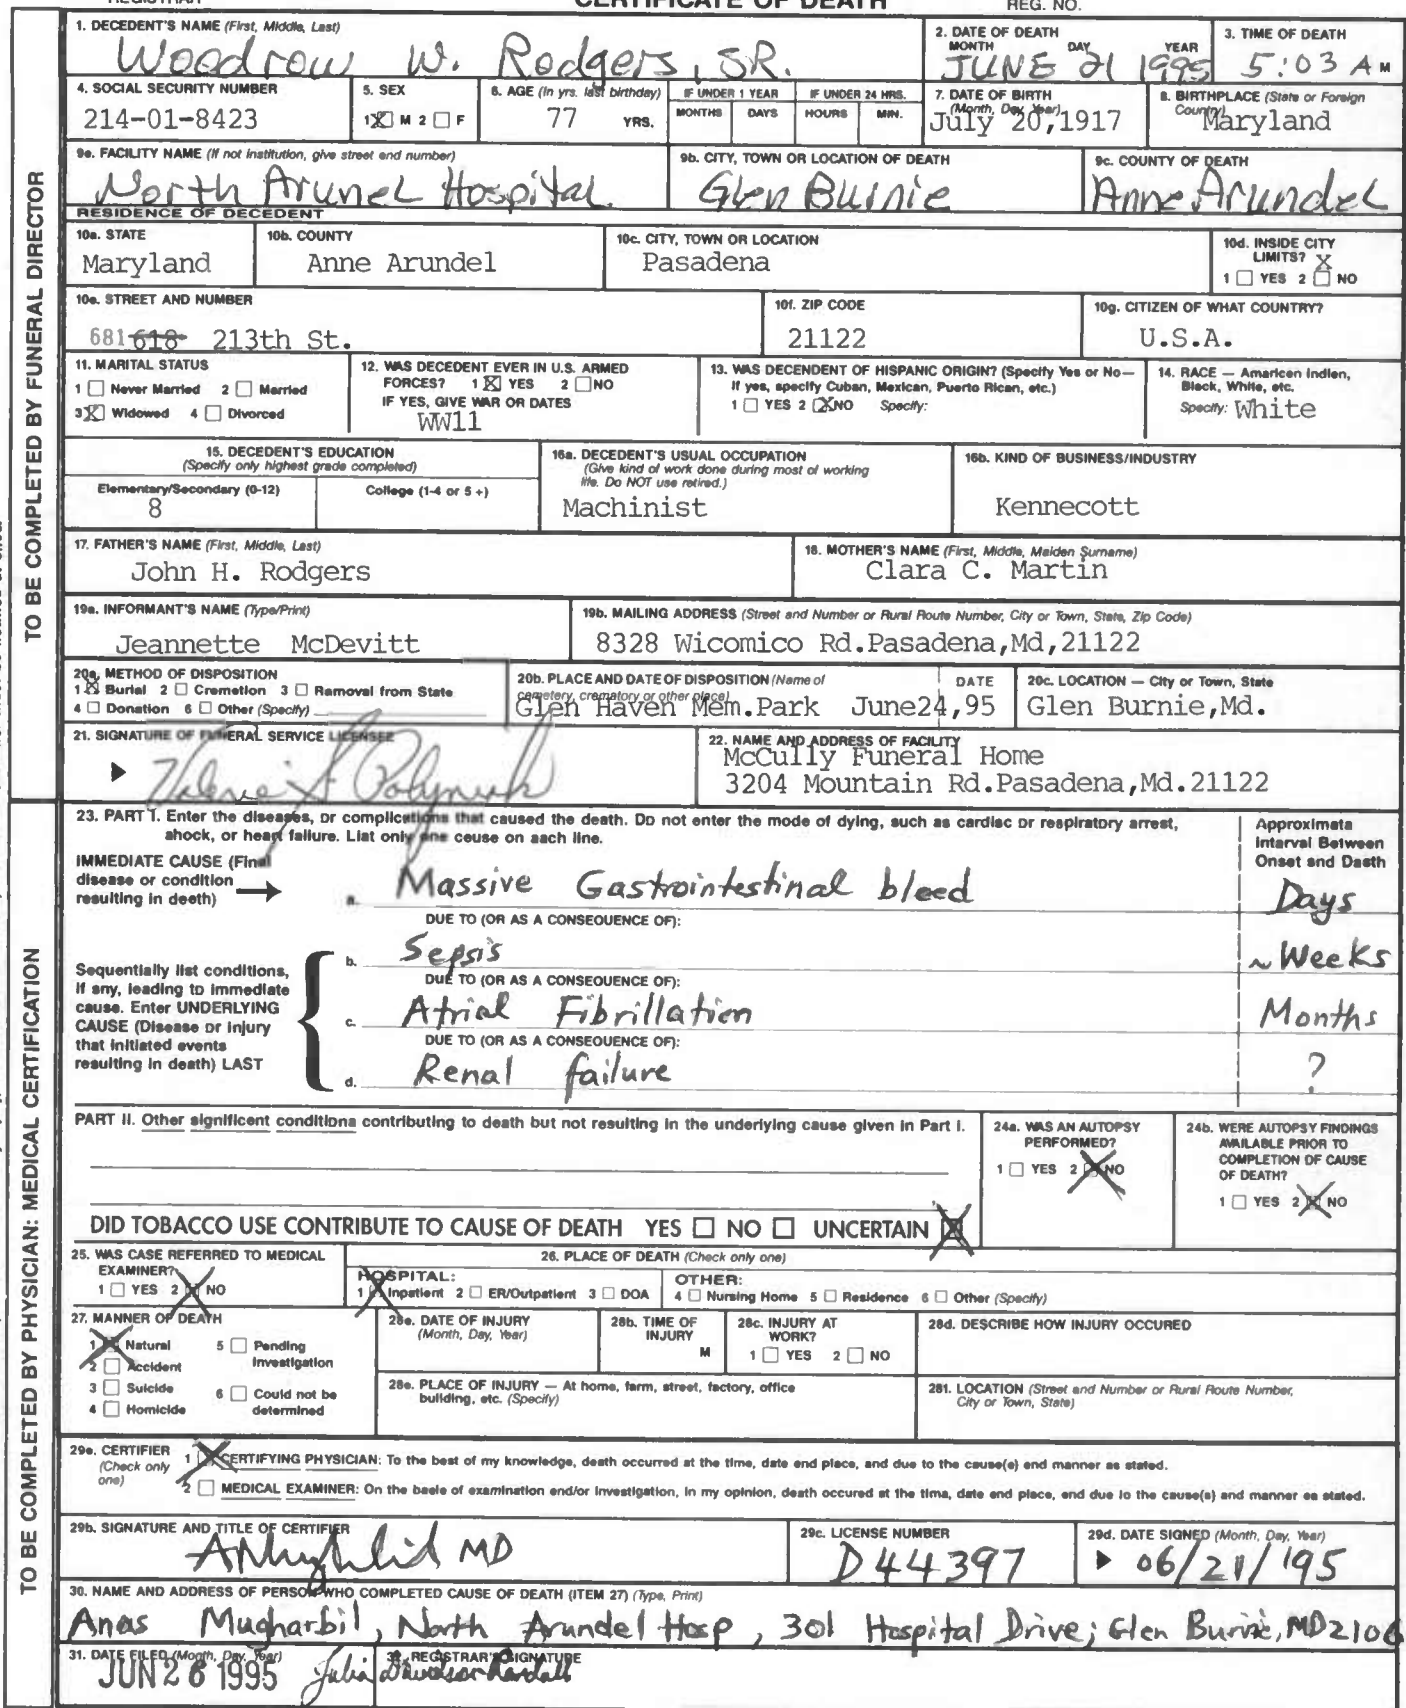 REGISTRAR CERTIFICATE OF DEATH REG. NO.
TO BE COMPLETED BY FUNERAL DIRECTOR
1. DECEDENT'S NAME (First, Middle, Last)
Woodrow W. Rodgers, SR.
2. DATE OF DEATH
MONTH DAY YEAR
JUNE 21 1995
3. TIME OF DEATH
5:03 A M
4. SOCIAL SECURITY NUMBER
214-01-8423
5. SEX
1 X M 2 □ F
6. AGE (In yrs. last birthday)
77 YRS.
IF UNDER 1 YEAR
MONTHS DAYS
IF UNDER 24 HRS.
HOURS MIN.
7. DATE OF BIRTH
(Month, Day, Year)
July 20,1917
8. BIRTHPLACE (State or Foreign
Country)
Maryland
9a. FACILITY NAME (If not institution, give street and number)
North Arunel Hospital
9b. CITY, TOWN OR LOCATION OF DEATH
Glen Burnie
9c. COUNTY OF DEATH
Anne Arundel
RESIDENCE OF DECEDENT
10a. STATE
Maryland
10b. COUNTY
Anne Arundel
10c. CITY, TOWN OR LOCATION
Pasadena
10d. INSIDE CITY
LIMITS? X
1 □ YES 2 □ NO
10e. STREET AND NUMBER
681 618 213th St.
10f. ZIP CODE
21122
10g. CITIZEN OF WHAT COUNTRY?
U.S.A.
11. MARITAL STATUS
1 □ Never Married 2 □ Married
3 X Widowed 4 □ Divorced
12. WAS DECEDENT EVER IN U.S. ARMED
FORCES? 1 X YES 2 □ NO
IF YES, GIVE WAR OR DATES
WW11
13. WAS DECENDENT OF HISPANIC ORIGIN? (Specify Yes or No—
If yes, specify Cuban, Mexican, Puerto Rican, etc.)
1 □ YES 2 X NO Specify:
14. RACE — American Indien,
Black, White, etc.
Specify: White
15. DECEDENT'S EDUCATION
(Specify only highest grade completed)
Elementary/Secondary (0-12) College (1-4 or 5 +)
8
16a. DECEDENT'S USUAL OCCUPATION
(Give kind of work done during most of working
life. Do NOT use retired.)
Machinist
16b. KIND OF BUSINESS/INDUSTRY
Kennecott
17. FATHER'S NAME (First, Middle, Last)
John H. Rodgers
18. MOTHER'S NAME (First, Middle, Maiden Surname)
Clara C. Martin
19a. INFORMANT'S NAME (Type/Print)
Jeannette McDevitt
19b. MAILING ADDRESS (Street and Number or Rural Route Number, City or Town, State, Zip Code)
8328 Wicomico Rd.Pasadena,Md,21122
20a. METHOD OF DISPOSITION
1 X Burial 2 □ Cremetion 3 □ Ramoval from State
4 □ Donation 6 □ Other (Specify)
20b. PLACE AND DATE OF DISPOSITION (Name of
cemetery, crematory or other place) DATE
Glen Haven Mem.Park June24,95
20c. LOCATION — City or Town, State
Glen Burnie,Md.
21. SIGNATURE OF FUNERAL SERVICE LICENSEE
22. NAME AND ADDRESS OF FACILITY
McCully Funeral Home
3204 Mountain Rd.Pasadena,Md.21122
TO BE COMPLETED BY PHYSICIAN: MEDICAL CERTIFICATION
23. PART I. Enter the diseases, or complications that caused the death. Do not enter the mode of dying, such as cardiac or respiratory arrest,
shock, or heart failure. List only one ceuse on each line.
Approximata
Interval Between
Onset and Death
IMMEDIATE CAUSE (Final
disease or condition
resulting in death)
a. Massive Gastrointestinal bleed Days
DUE TO (OR AS A CONSEQUENCE OF):
b. Sepsis ~ Weeks
DUE TO (OR AS A CONSEQUENCE OF):
c. Atrial Fibrillation Months
DUE TO (OR AS A CONSEQUENCE OF):
d. Renal failure ?
Sequentially list conditions,
if any, leading to immediate
cause. Enter UNDERLYING
CAUSE (Disease or injury
that initiated events
resulting in death) LAST
PART II. Other significant conditions contributing to death but not resulting in the underlying cause given in Part I.
24a. WAS AN AUTOPSY
PERFORMED?
1 □ YES 2 X NO
24b. WERE AUTOPSY FINDINGS
AVAILABLE PRIOR TO
COMPLETION OF CAUSE
OF DEATH?
1 □ YES 2 X NO
DID TOBACCO USE CONTRIBUTE TO CAUSE OF DEATH YES □ NO □ UNCERTAIN X
25. WAS CASE REFERRED TO MEDICAL
EXAMINER?
1 □ YES 2 X NO
26. PLACE OF DEATH (Check only one)
HOSPITAL:
1 X Inpatient 2 □ ER/Outpatient 3 □ DOA
OTHER:
4 □ Nursing Home 5 □ Residence 6 □ Other (Specify)
27. MANNER OF DEATH
1 X Natural 5 □ Pending
Investigation
2 □ Accident
3 □ Suicide 6 □ Could not be
determined
4 □ Homicide
28a. DATE OF INJURY
(Month, Day, Year)
28b. TIME OF
INJURY
M
28c. INJURY AT
WORK?
1 □ YES 2 □ NO
28d. DESCRIBE HOW INJURY OCCURED
28e. PLACE OF INJURY — At home, farm, street, factory, office
building, etc. (Specify)
281. LOCATION (Street and Number or Rural Route Number,
City or Town, State)
29a. CERTIFIER
(Check only
one)
1 X CERTIFYING PHYSICIAN: To the best of my knowledge, death occurred at the time, date end place, and due to the cause(e) end manner as stated.
2 □ MEDICAL EXAMINER: On the basie of examination end/or investigation, in my opinion, death occured at the tima, date end place, end due to the cause(s) and manner ea stated.
29b. SIGNATURE AND TITLE OF CERTIFIER
MD
29c. LICENSE NUMBER
D44397
29d. DATE SIGNED (Month, Day, Year)
06/21/'95
30. NAME AND ADDRESS OF PERSON WHO COMPLETED CAUSE OF DEATH (ITEM 27) (Type, Print)
Anas Mugharbil, North Arundel Hosp, 301 Hospital Drive; Glen Burnie, MD 2106
31. DATE FILED (Month, Day, Year)
JUN 26 1995
32. REGISTRAR'S SIGNATURE
Julia Davidson-Randall